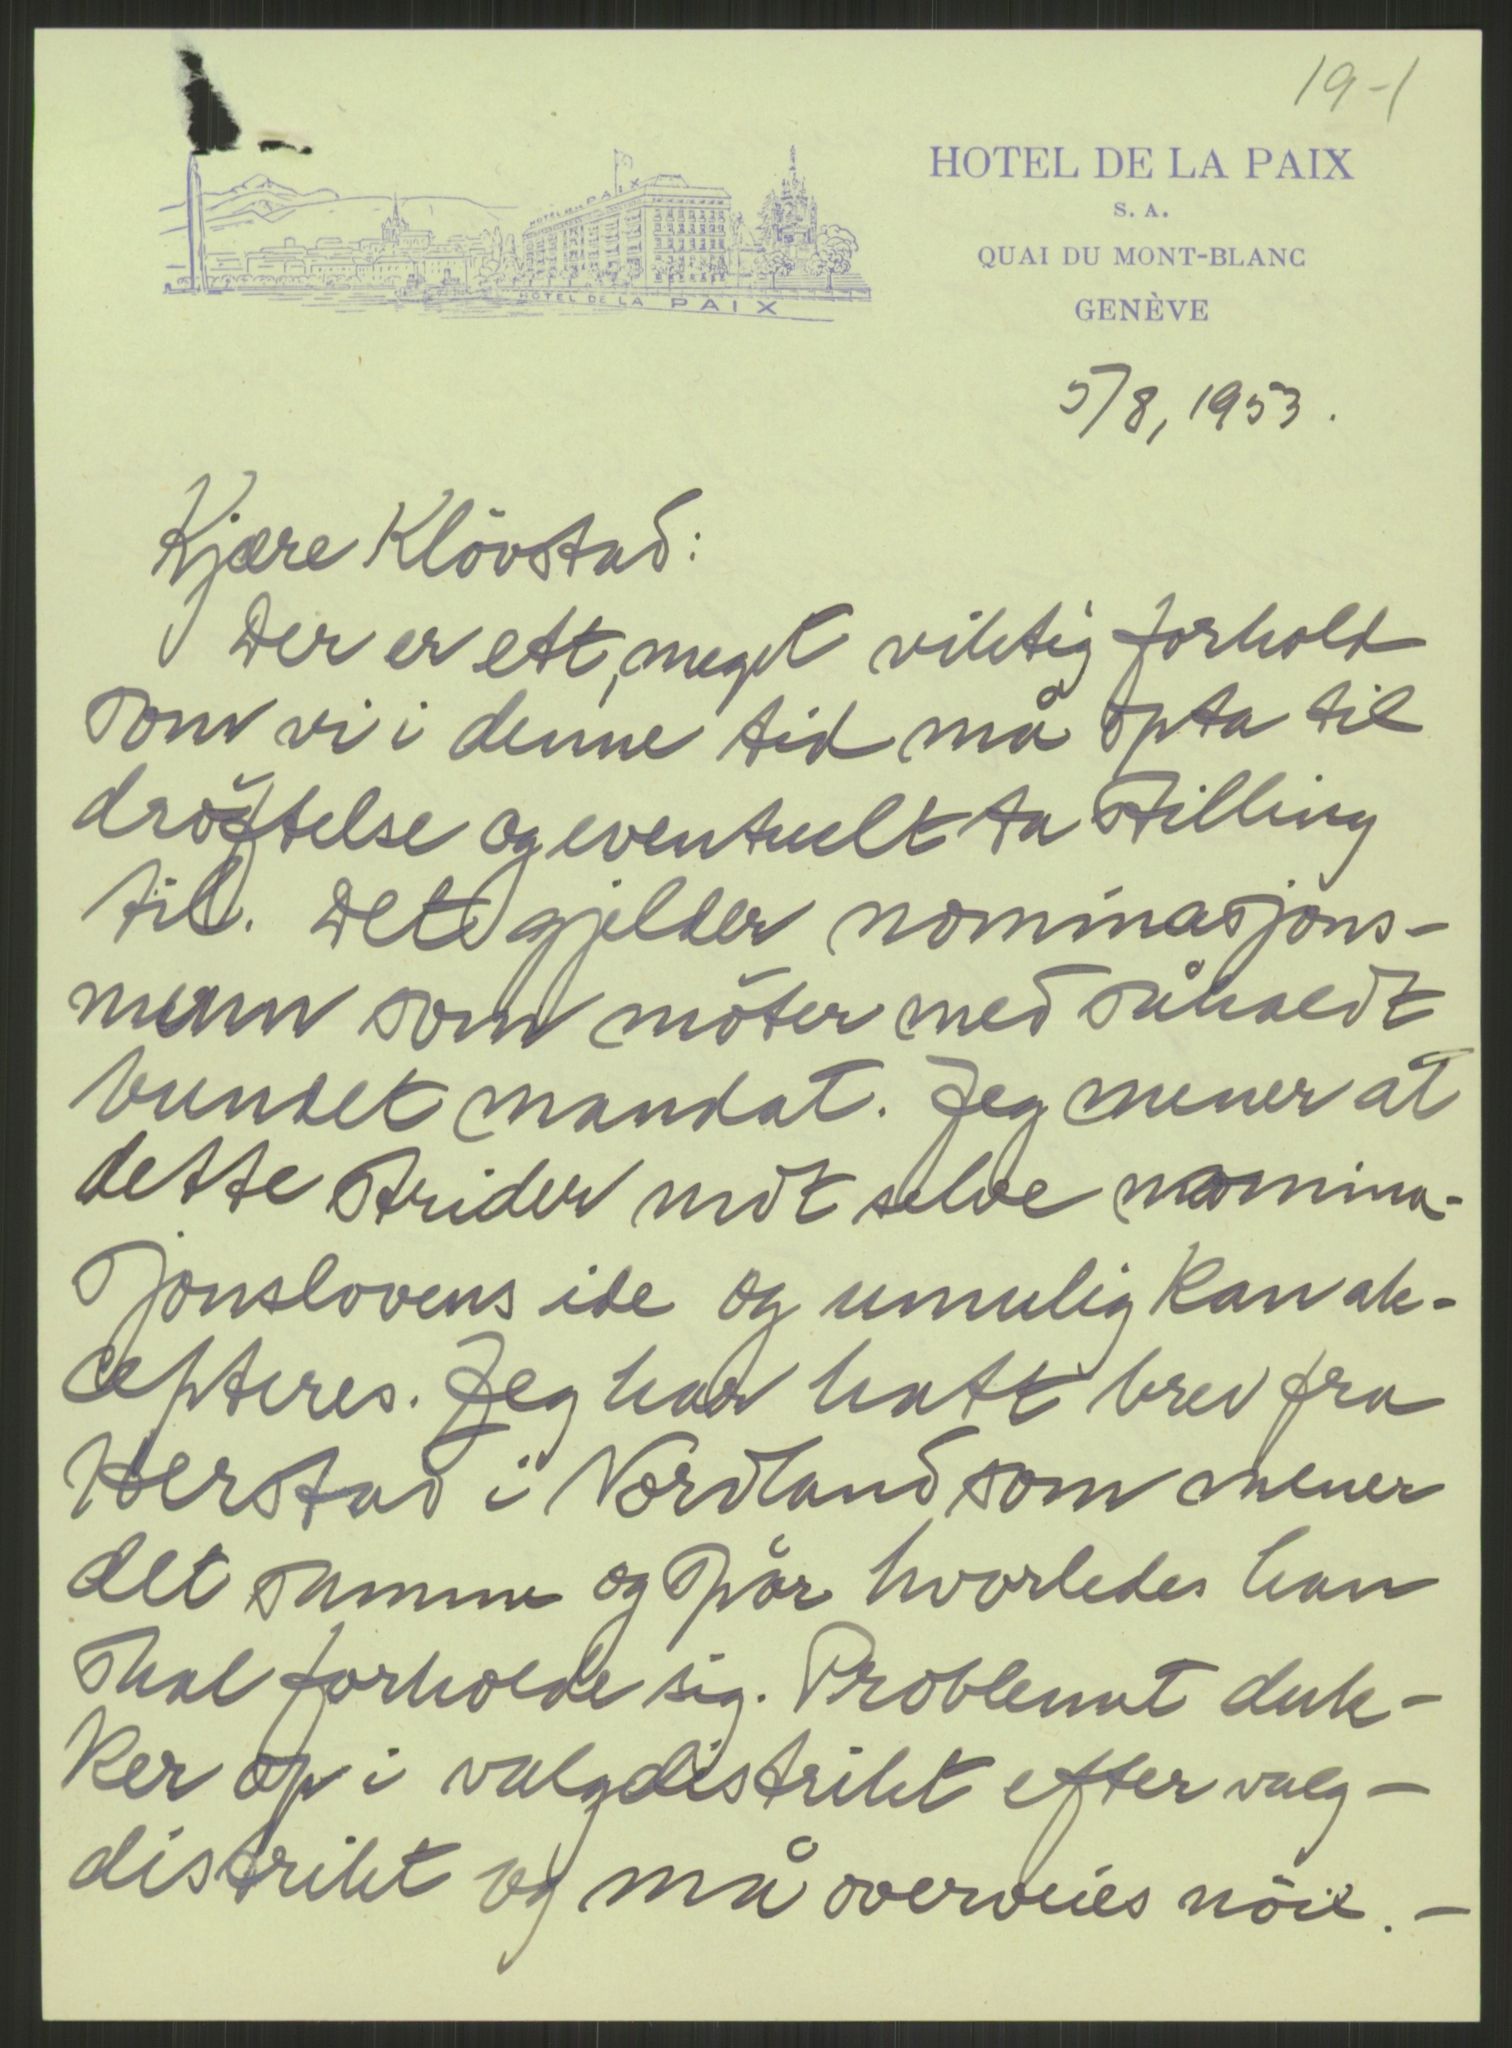 19-1
HOTEL DE LA PAIX
HOTEL DE LA PAIX
S. A.
QUAI DU MONT-BLANC
HOTEL DE LA PAIX
GENÈVE
5/8, 1953.
Kjære Klövstad:
Der er ett, meget viktig forhold
som vi i denne tid må opta til
dröftelse og eventuelt ta stilling
til. Det gjelder nominasjons-
menn som möter med såkaldt
bundet mandat. Jeg mener at
dette strider mot selve nomina-
sjonslovens ide og umulig kan ak-
cepteres. Jeg har hatt brev fra
Herstad i Nordland som mener
det samme og spör hvorledes han
skal forholde sig. Problemet duk-
ker op i valgdistrikt efter valg-
distrikt og må overveies nöie. -